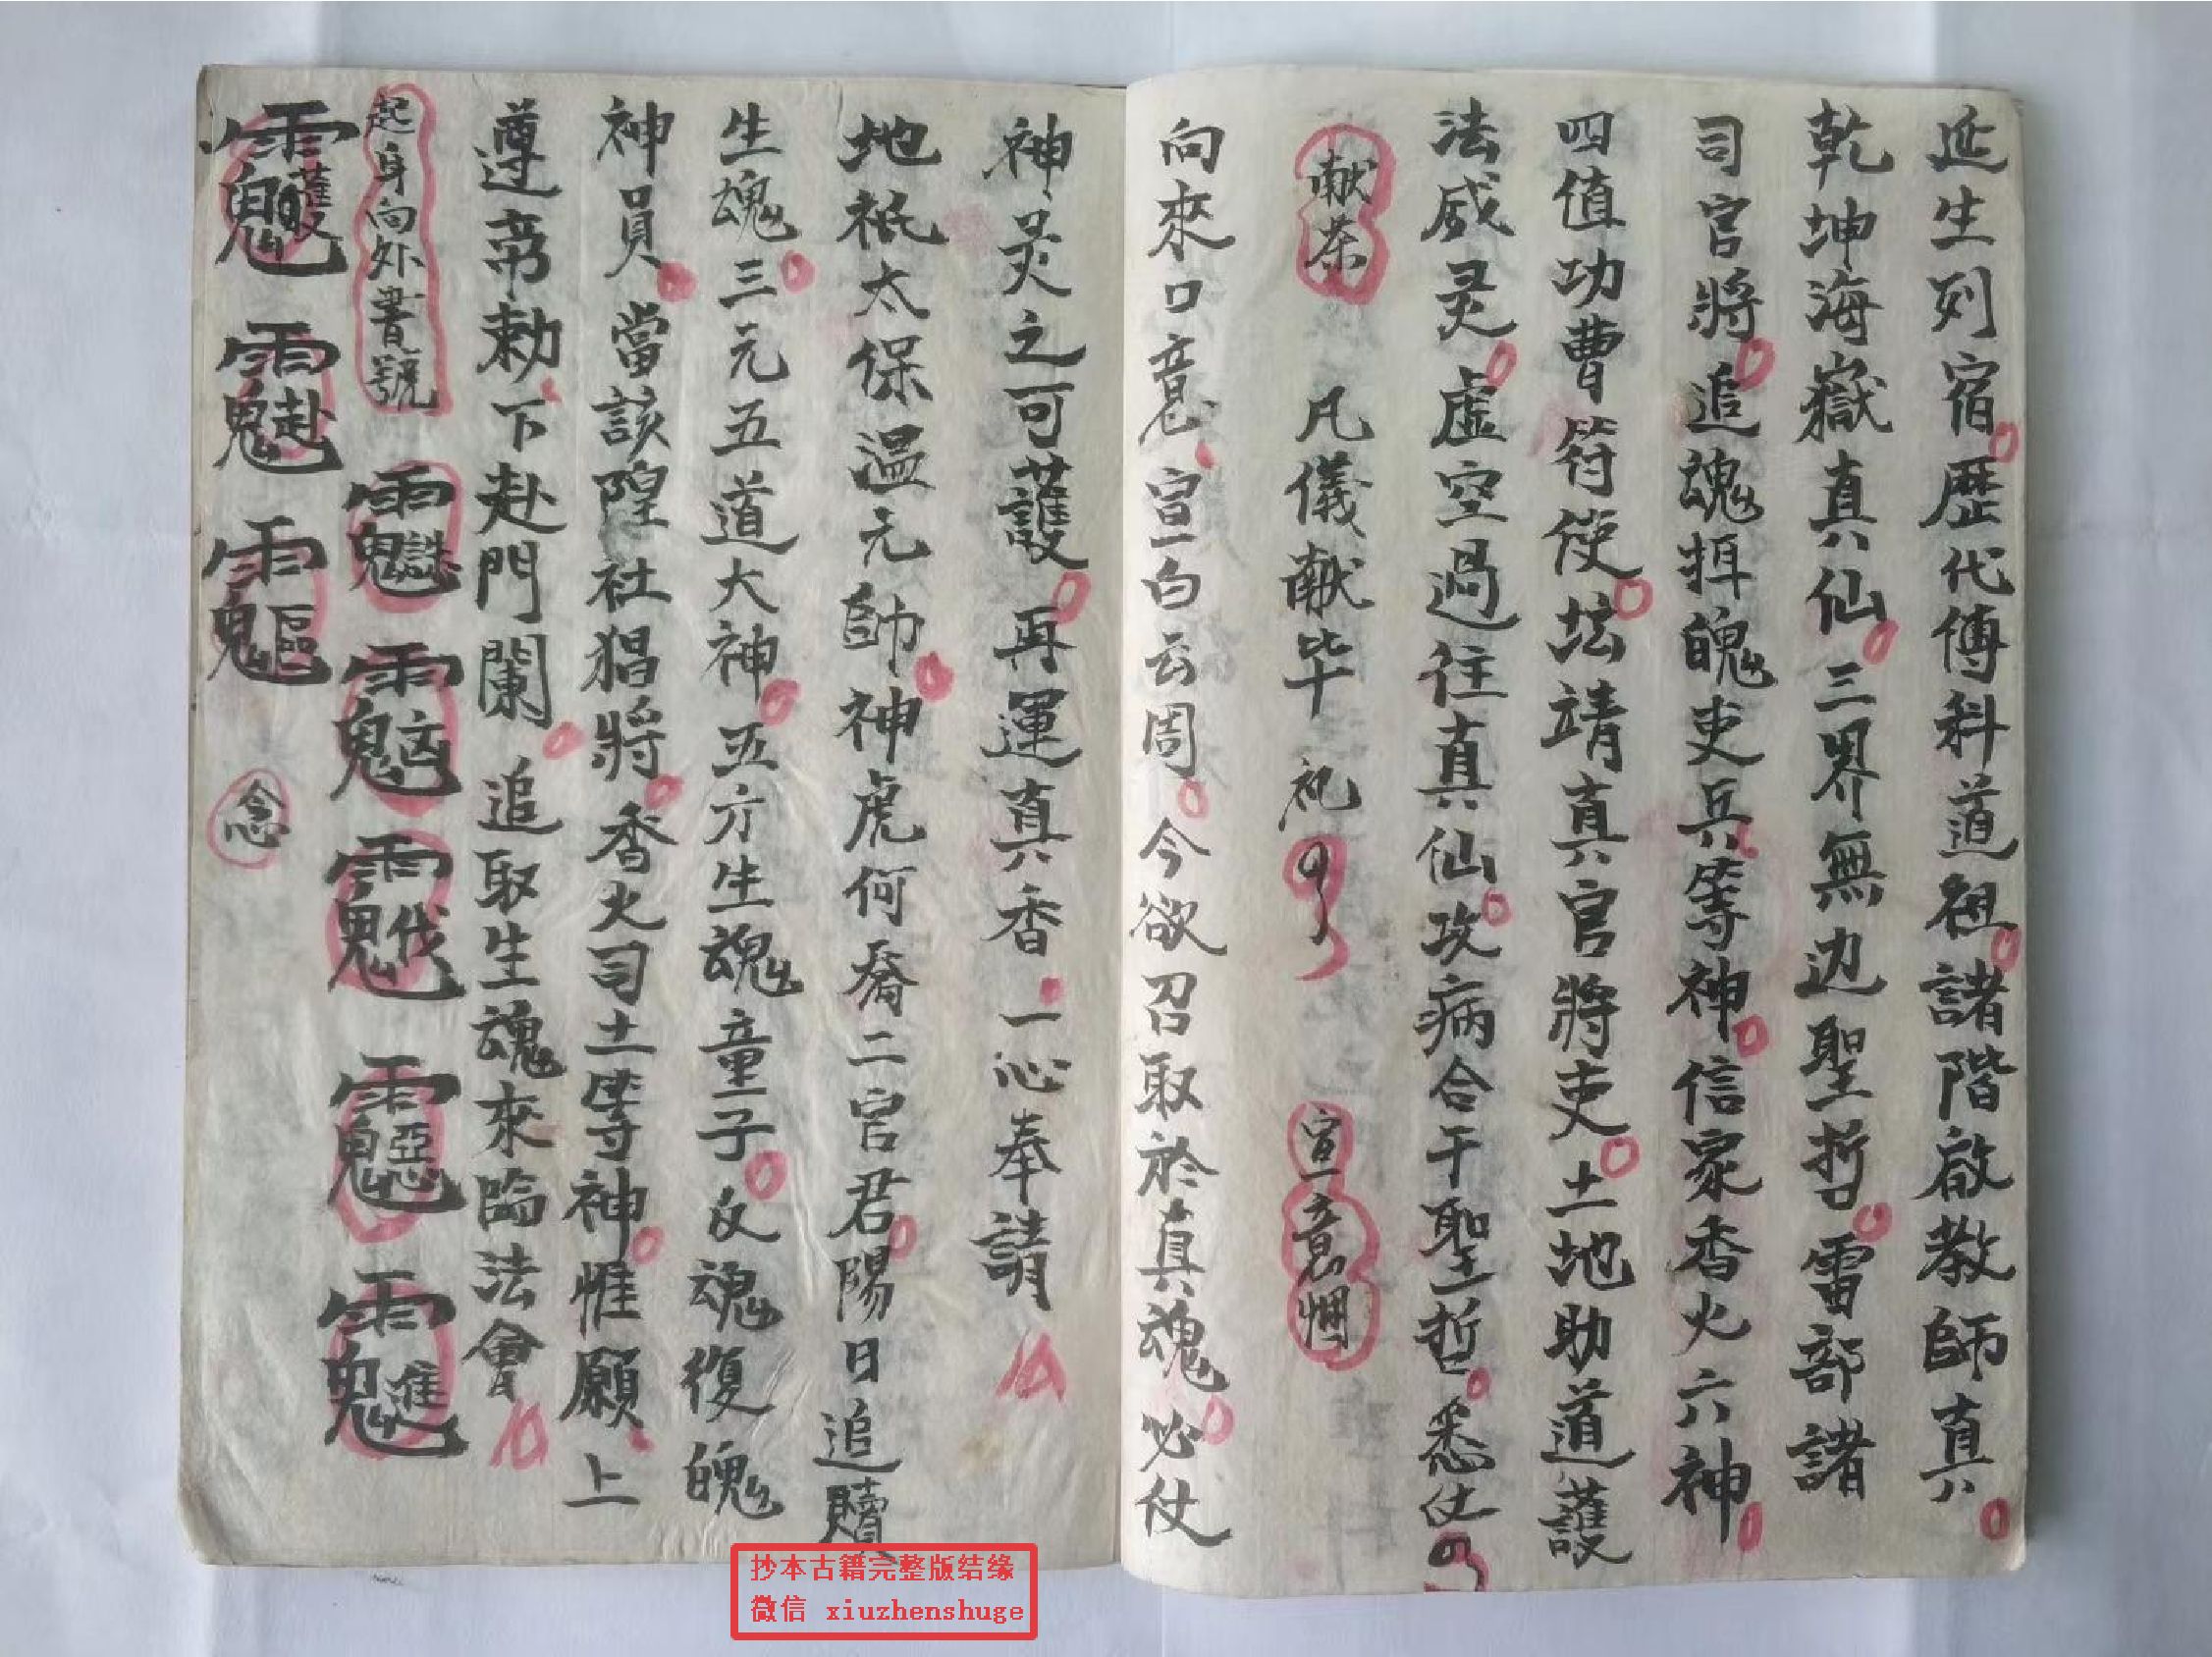 延生列宿歷代傳科道祖諸階啟教師真
乾坤海嶽真仙三界無边聖哲雷部諸
司官將追魂拘魄吏兵等神信家香火六神
四值功曹符使坛靖真官將吏土地助道護
法威灵虛空過往真仙攻病合干聖哲悉仗
献茶 凡儀献毕祝 宣意悃
向來口意宣白云周今欲召取於真魂必仗
神灵之可護再運真香一心奉請
地祇太保温元帥神虎何喬二官君陽日追贖
生魂三元五道大神五方生魂童子返魂復魄
神員當該隍社猖將香火司土等神惟願上
遵帝勅下赴門闌追取生魂來臨法會
起身向外書號
念
抄本古籍完整版结缘
微信 xiuzhenshuge